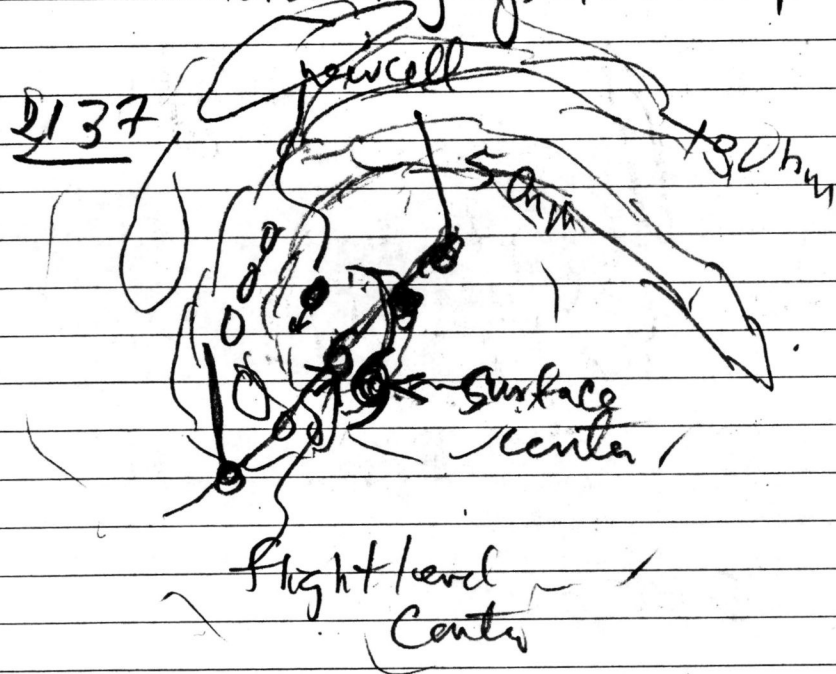 2137
new cell
180 nm
50 nm
surface
center
flight level
Center